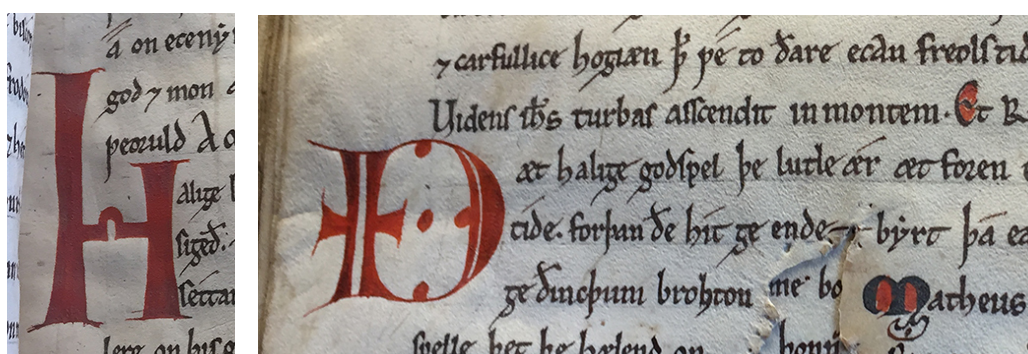 god ⁊ mon
ƿeoruld A o
Halige
siged
settan
lere on his g
⁊ carfullice hogiæn ꝥ ƿe to ðare ecan freolstid
Uidens ih̄s turbas asscendit in montem. Et R
Ðæt halige godspel þe lutle ær æt foren
tide. forþan ðe hit ge ende byrt þa ea
ge ðincþum brohton me bo Matheus
spelle het he hælend on